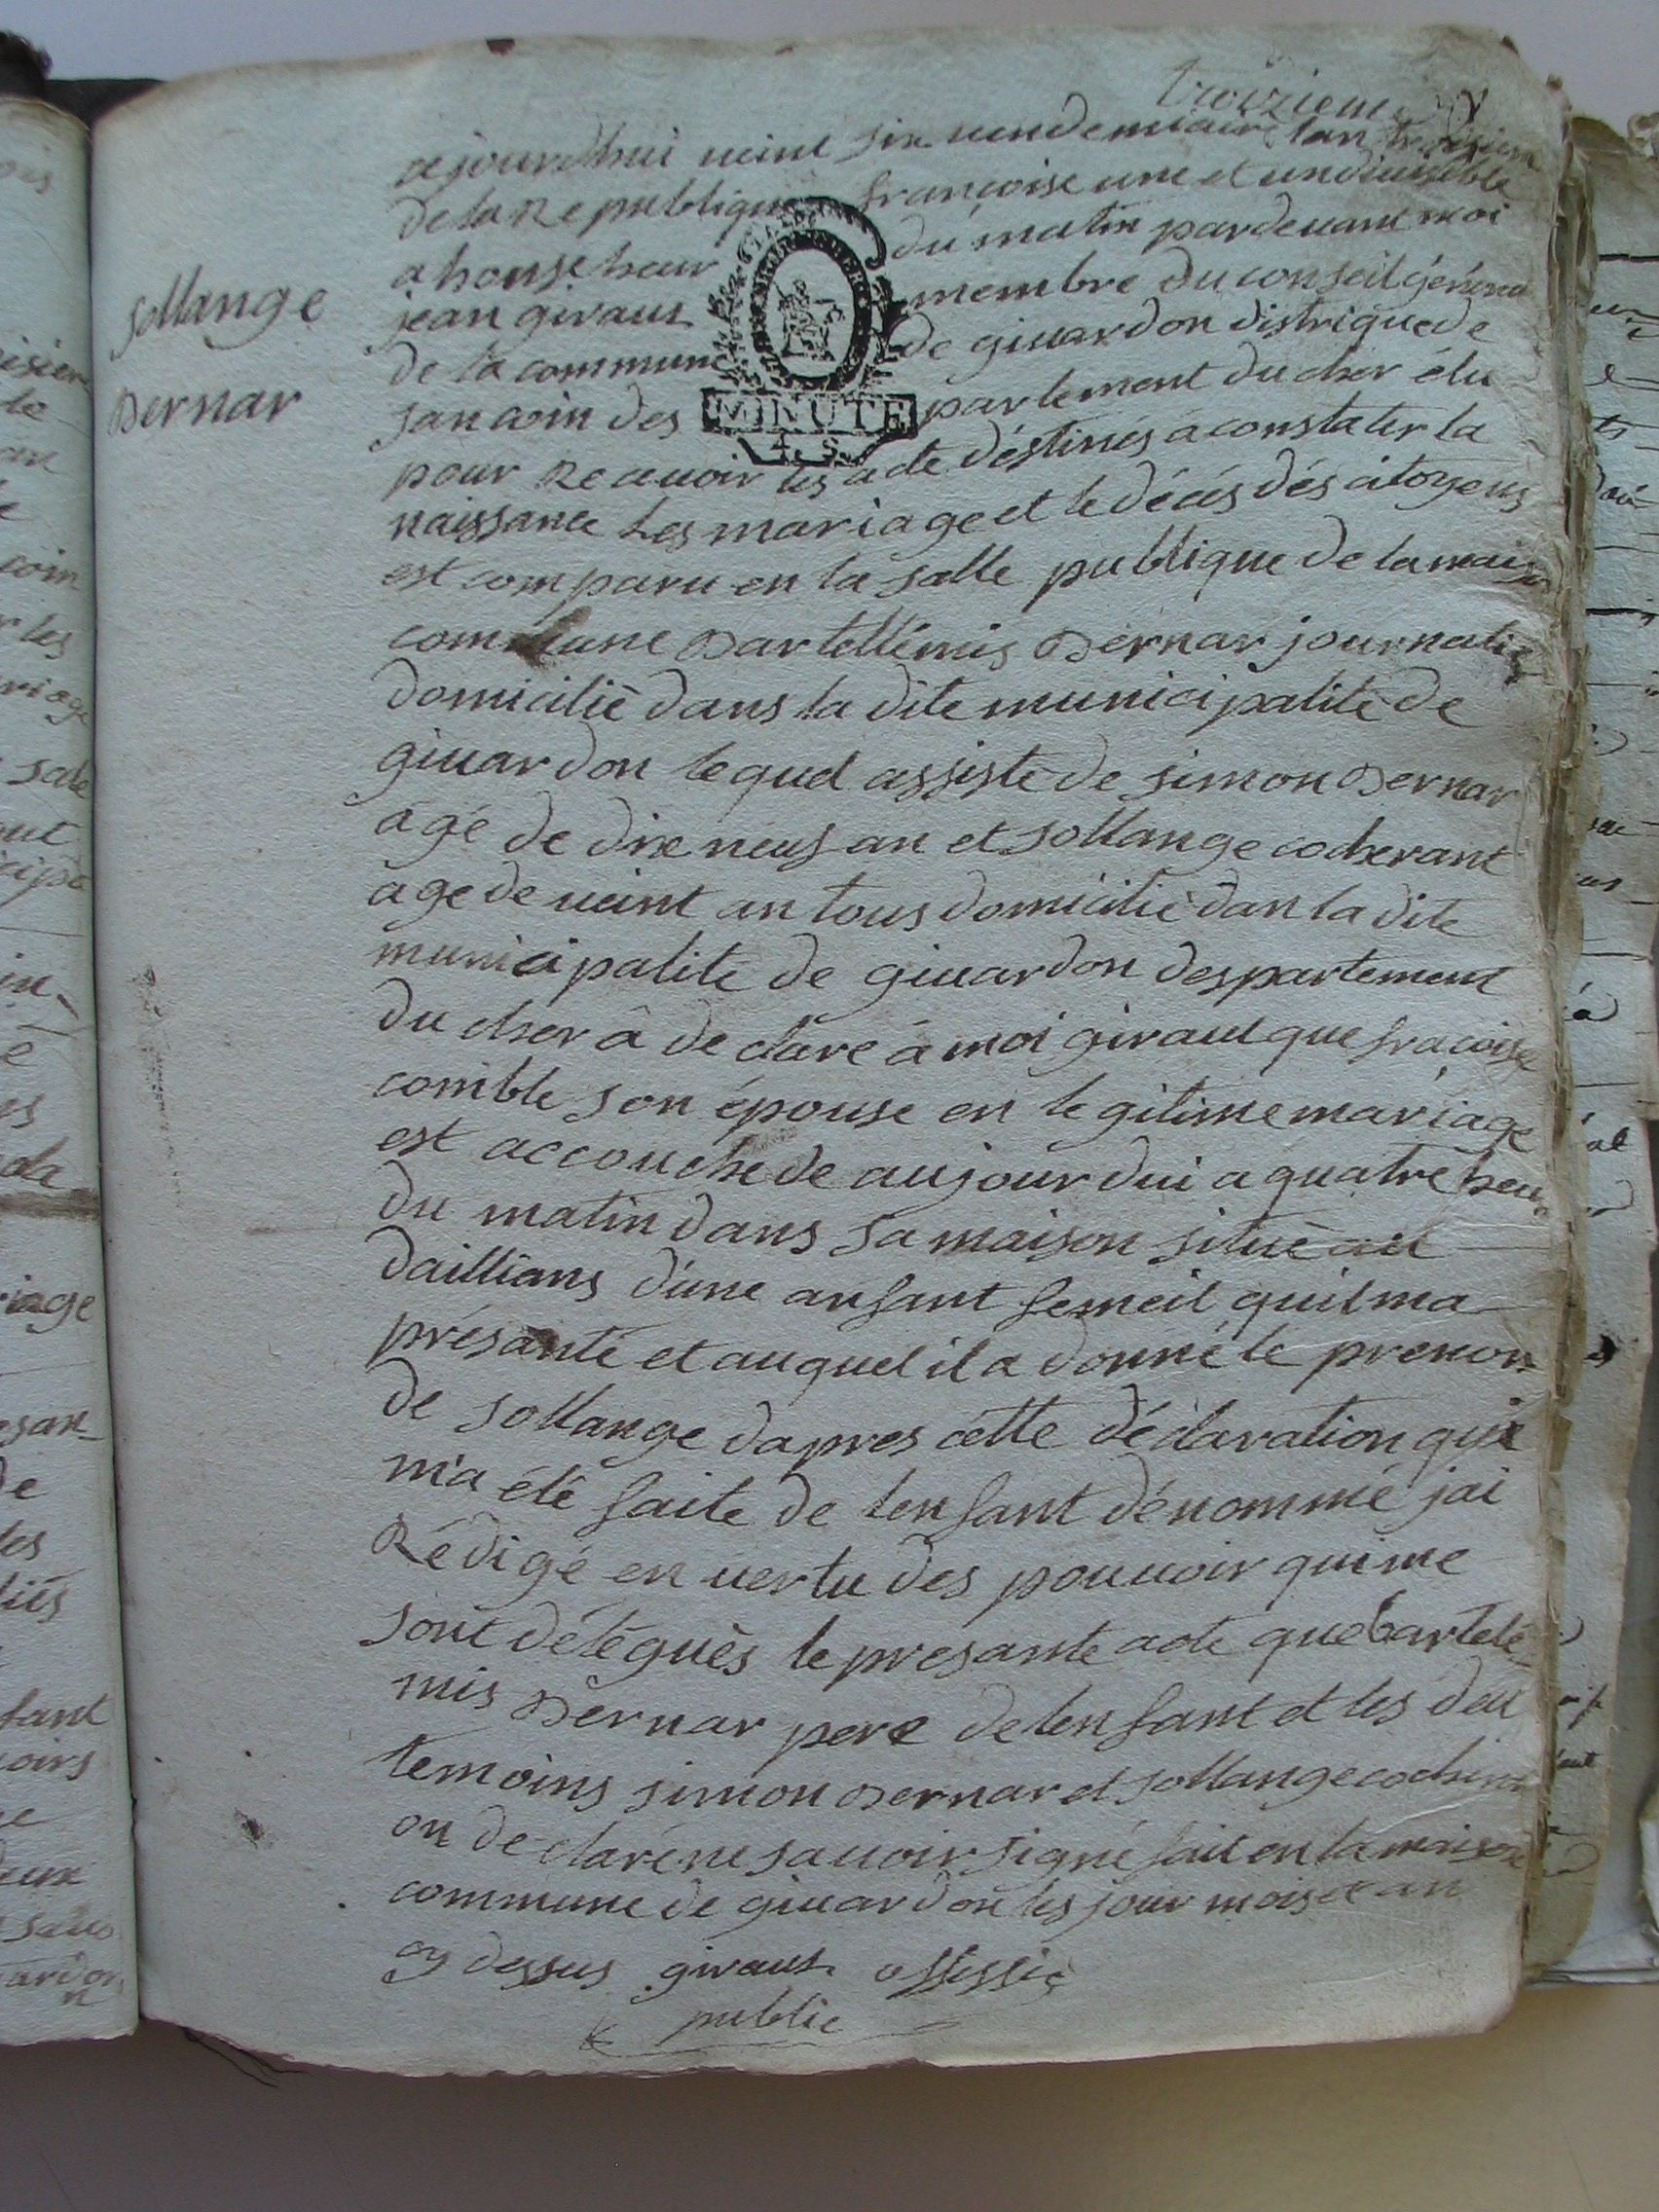 troizieme
sollange
Bernar
ajourdhui veint six vendemiaire lan troisiem
de la Republique françoise une et undivisible
a honse heur du matin pardevant moi
jean giraut membre du conseil général
de la commune de givardon distrique de
sancoin des partement du cher élu
pour Recevoir les acte déstines a constater la
naissance Les mariage et le décés dés citoyens
est comparu en la salle publique de la maison
commune Bartellémis Bernar journalié
domicilié dans la dite municipalité de
givardon lequel assisté de simon Bernar
agé de dix neuf an et sollange cocherant
age de veint an tous domicilié dan la dite
municipalite de givardon despartement
du cher â de claré a moi giraut que fracoise
comble son épouse en legitime mariage
est accouche de aujourdui a quatre heu
du matin dans sa maison situé au
daillians d'une anfant femeil quil ma
présanté et auquel il a donné le prenon
de sollange dapres cette déclaration qui
m'a été faite de lenfant dénommé jai
Rédigé en vertu des pouvoir qui me
sont délégués le presante acte que bartelé
mis Bernar pere de lenfant et les deu
temoins simon Bernar et sollange cocheran
on declaré ne savoir signé fait en la maison
commune de givardon les jour mois et an
cy dessus giraut offissié
public
MINUTE
4 S.